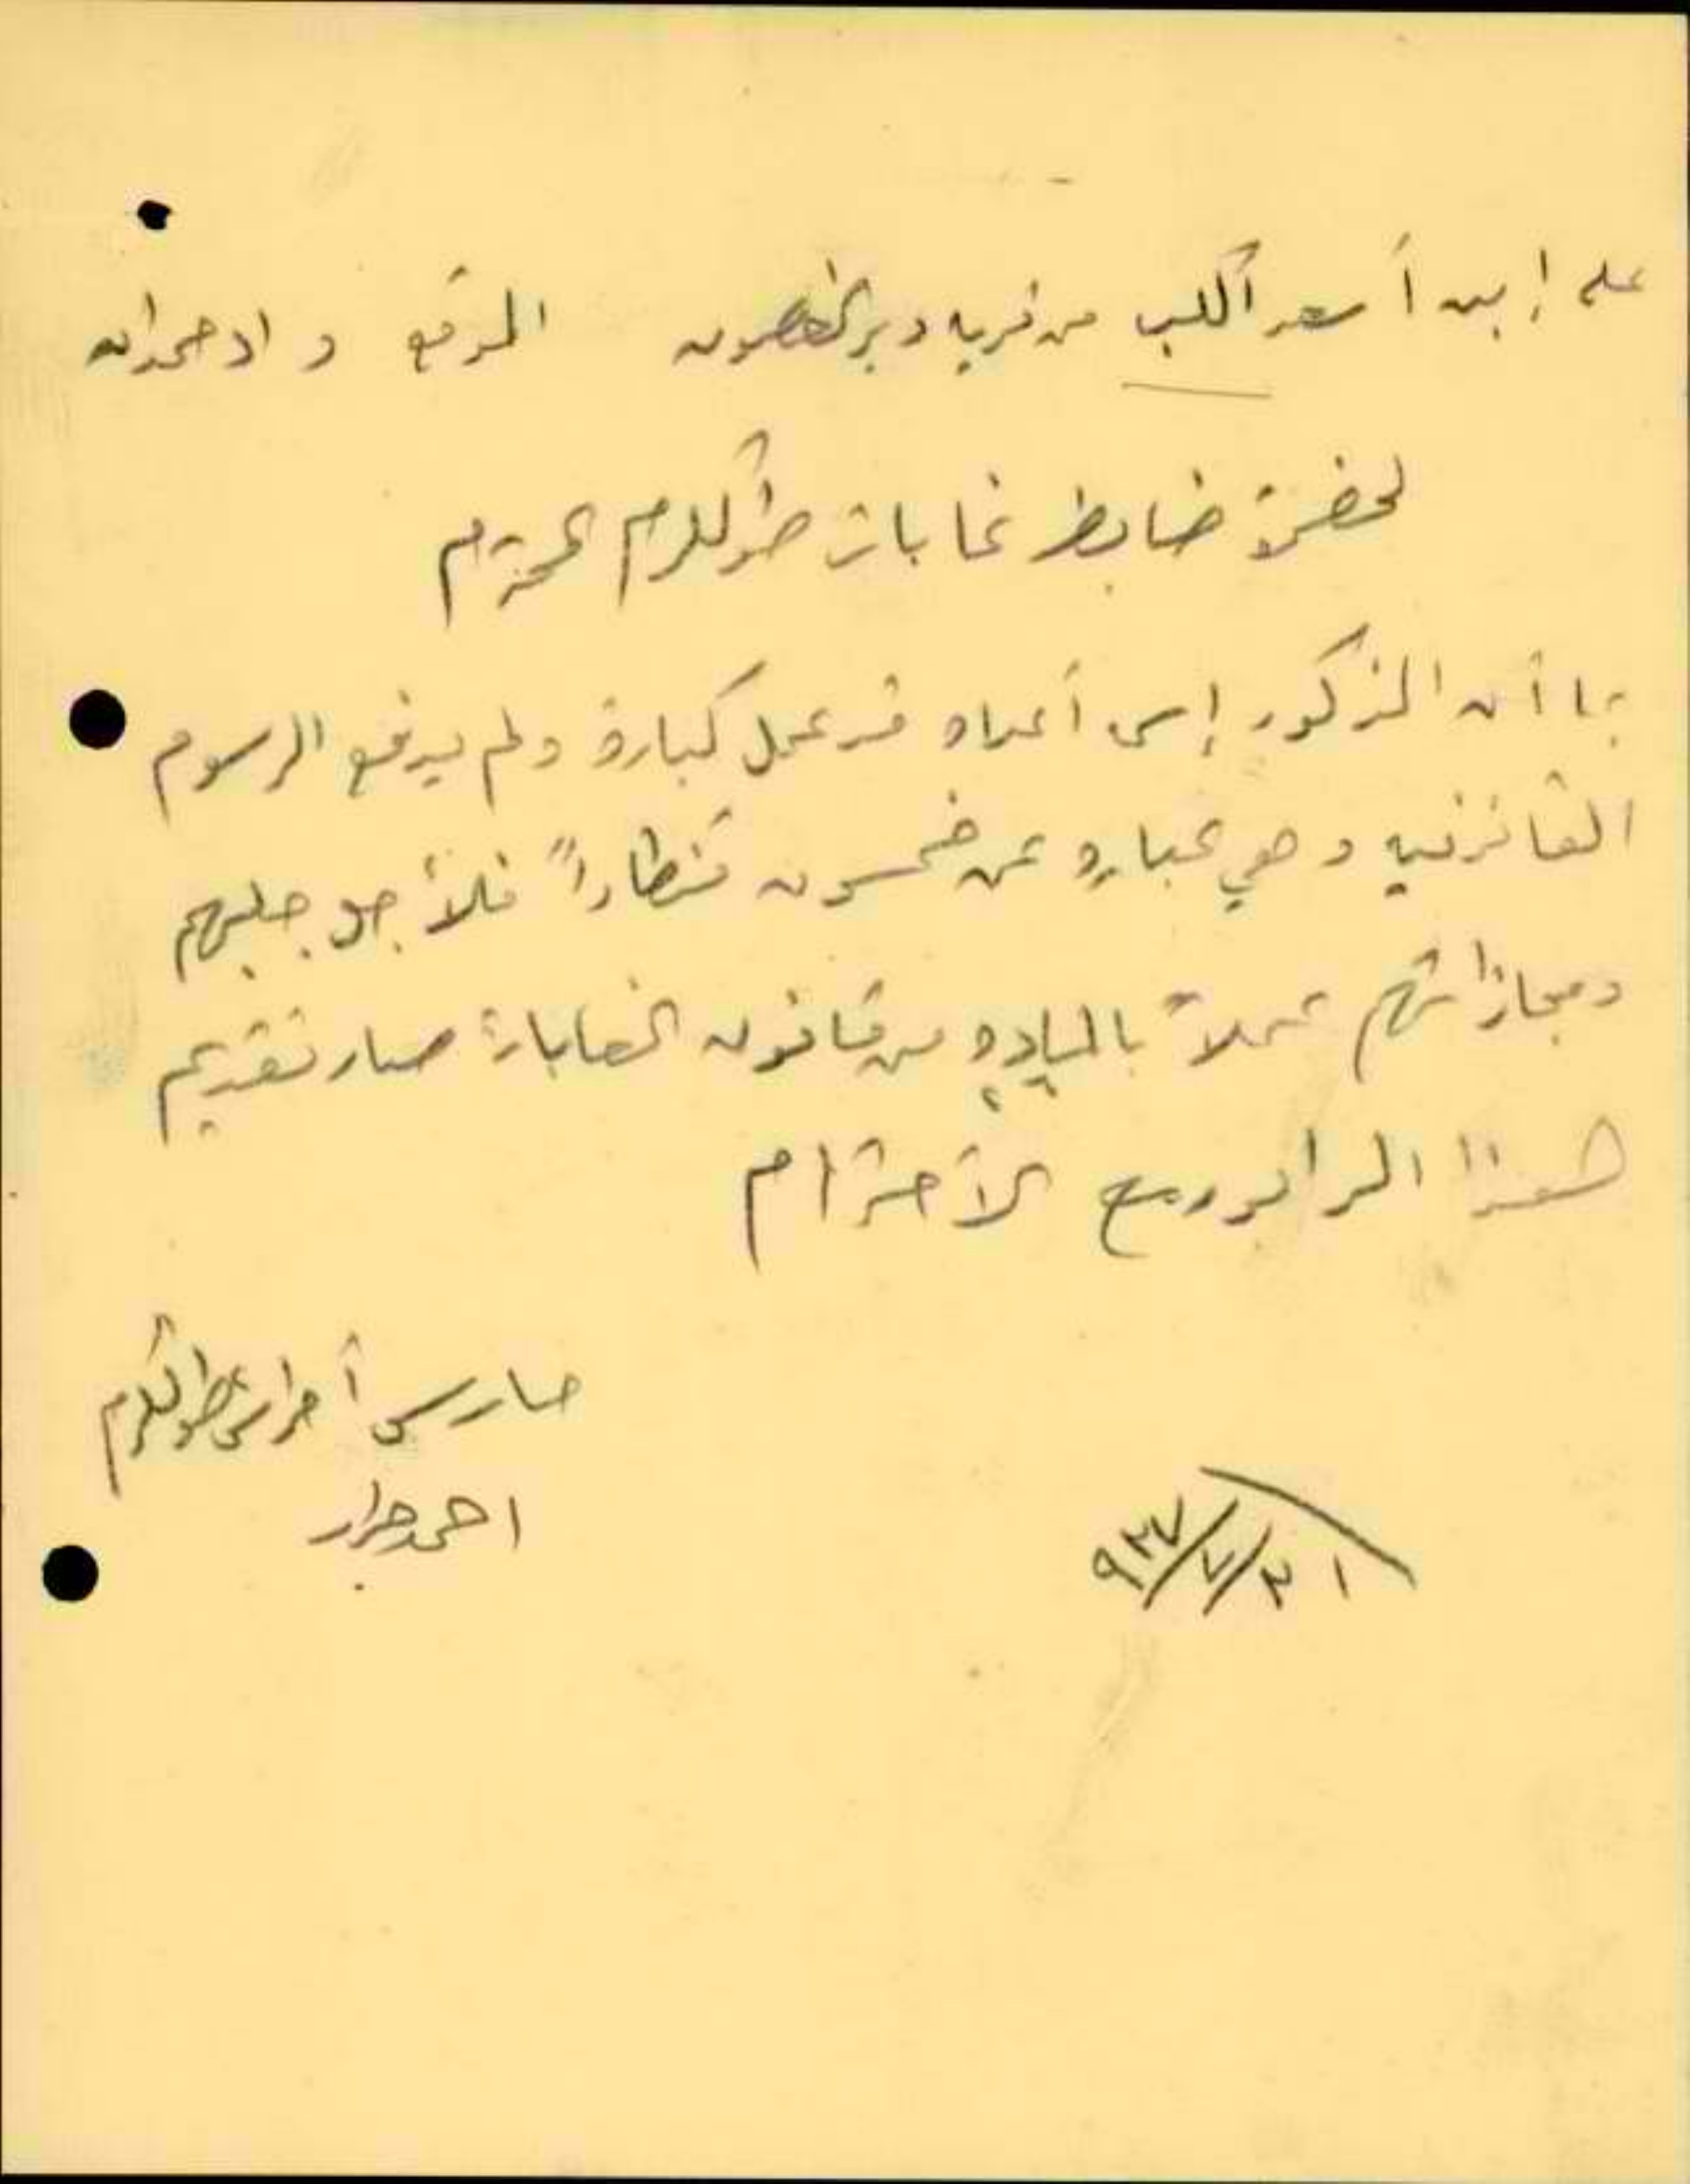 على إبن أسعد الكلب من قرية دير الغصون الموقع واد حمدان
لحضرة ضابط غابات طولكرم المحترم
بما أن المذكور إسمه أعلاه قد عمل كبارة ولم يدفع الرسوم
القانونيه وهي عباره عن خمسون قنطاراً فلأجل جلبهم
ومجازاتهم عملاً بالماده من قانون الغابات صار تقديم
هذا الرابور مع الأحترام
حارس أحراش طولكرم
احمد جرار
٩٣٧/٧/٢١